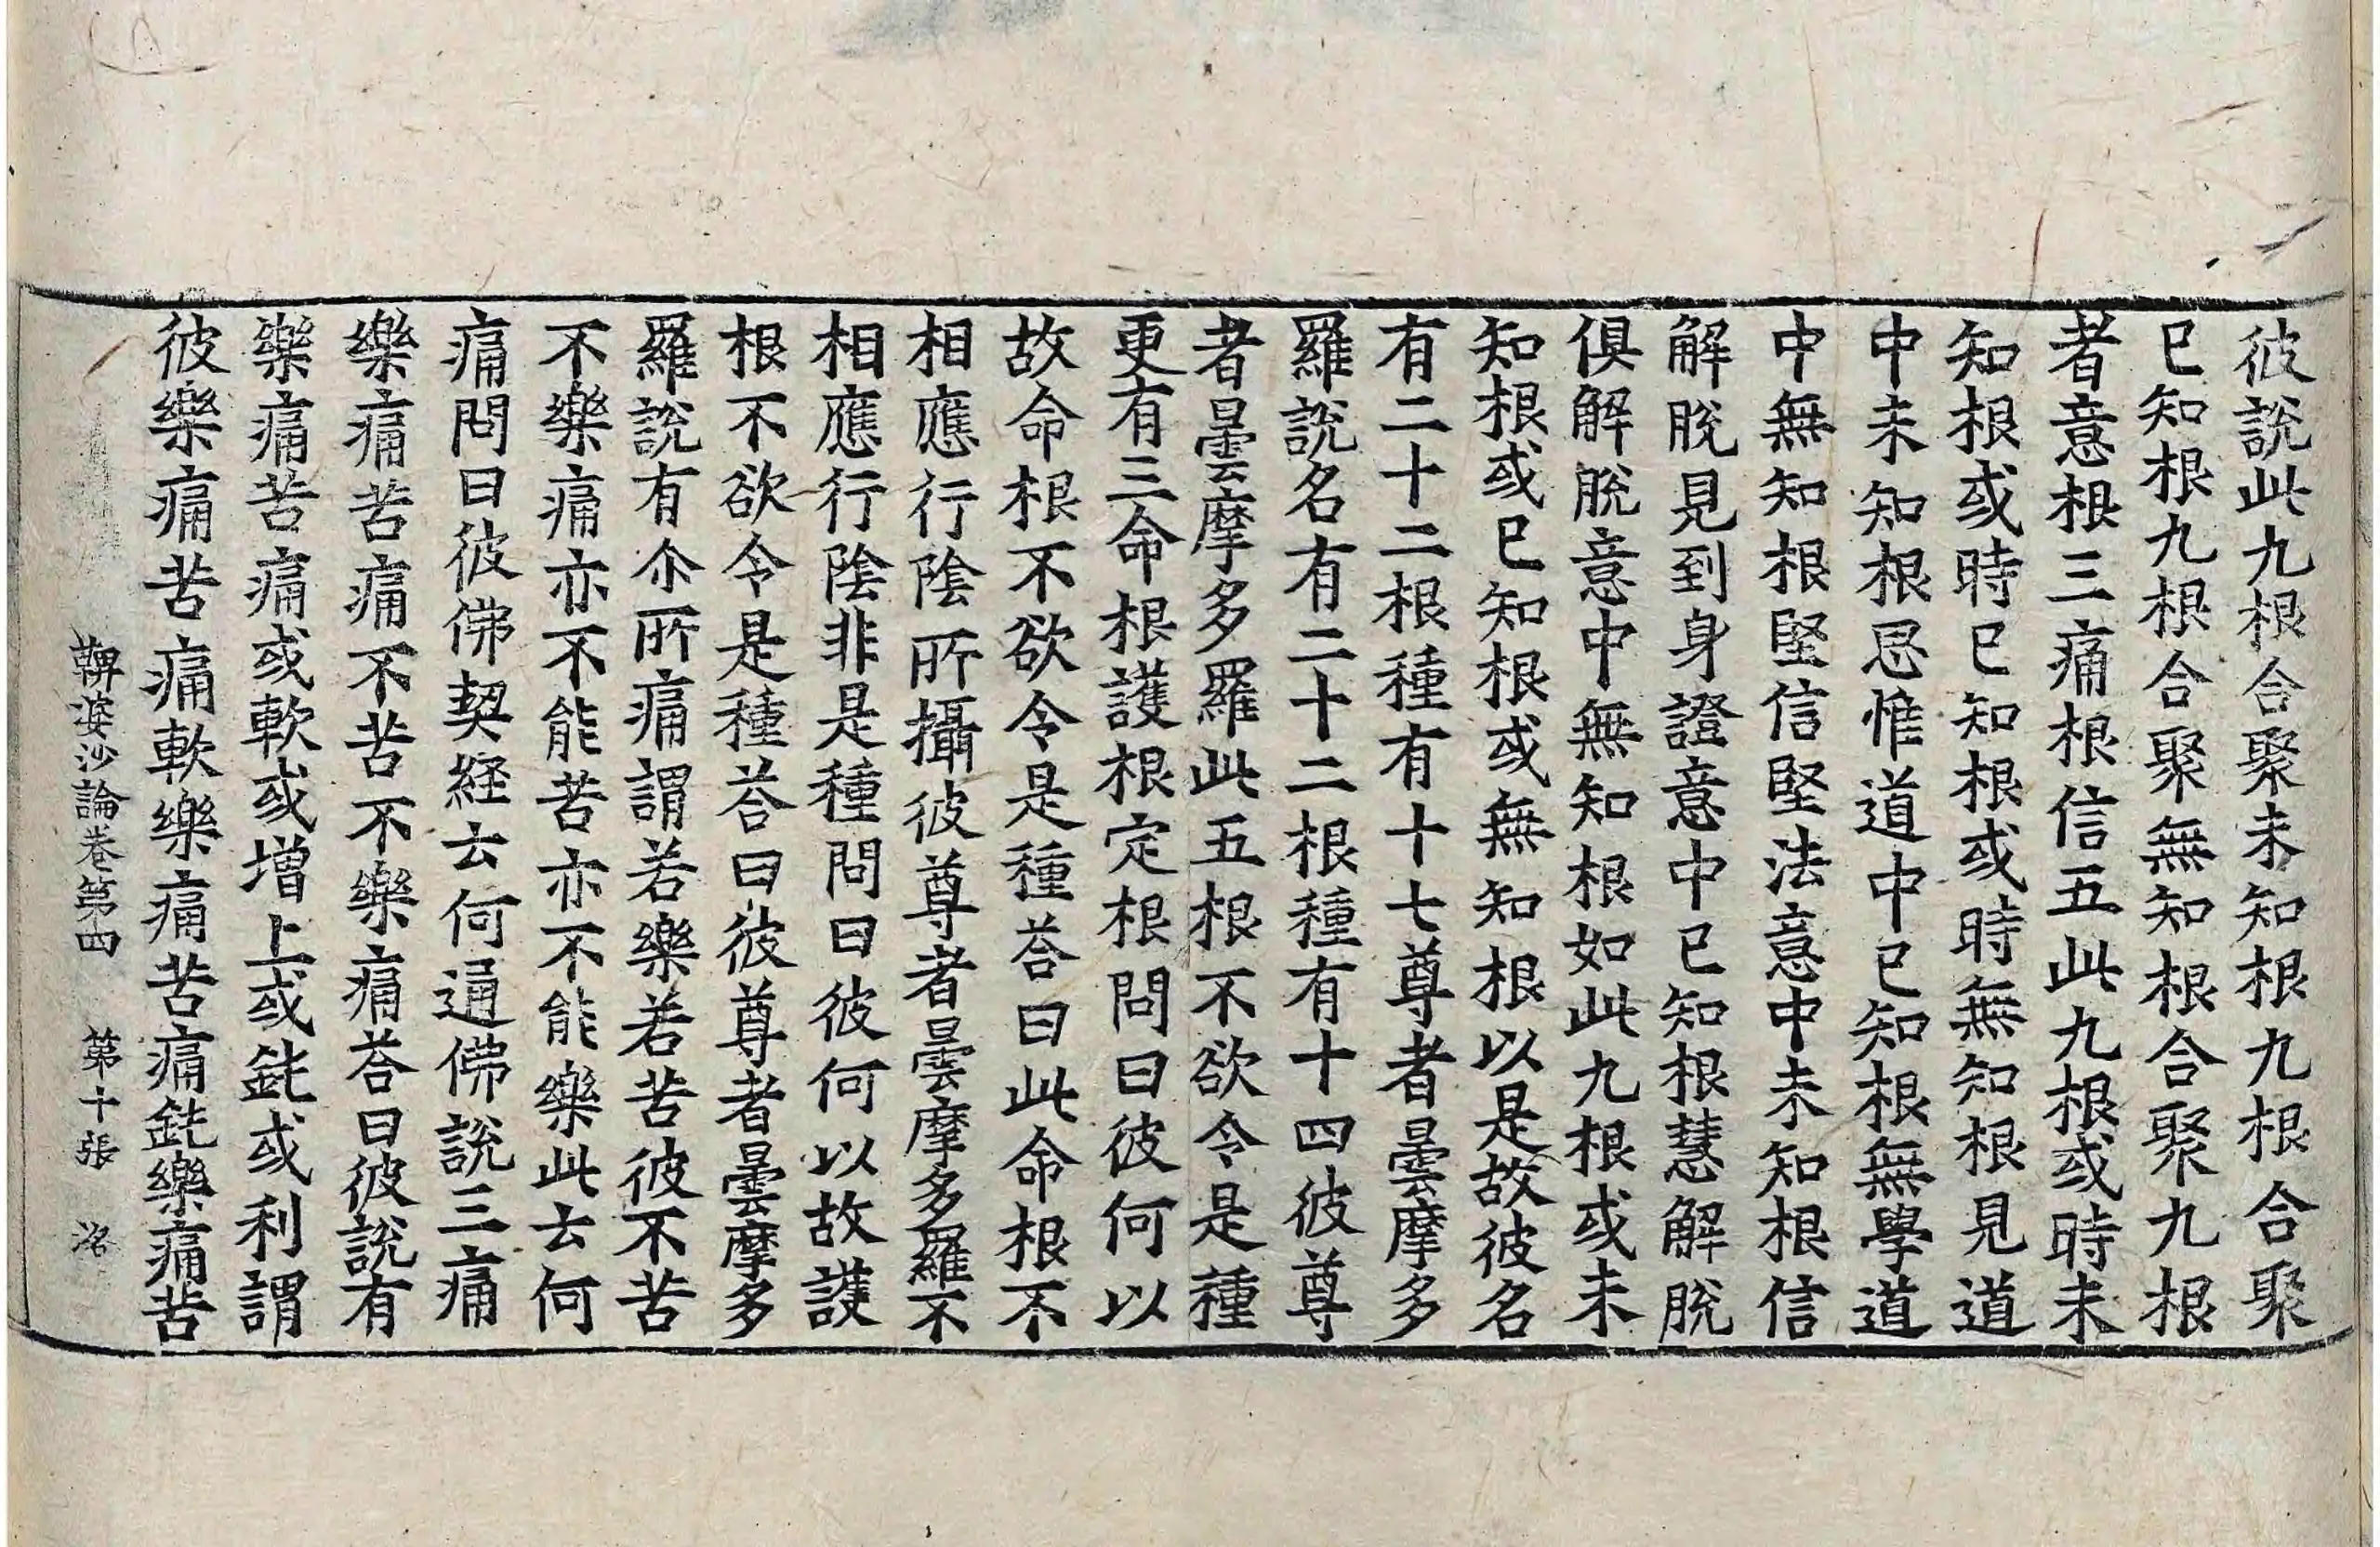 彼說此九根合聚未知根九根合聚
已知根九根合聚無知根合聚九根
者意根三痛根信五此九根或時未
知根或時已知根或時無知根見道
中未知根思惟道中已知根無學道
中無知根堅信堅法意中未知根信
解脫見到身證意中已知根慧解脫
俱解脫意中無知根如此九根或未
知根或已知根或無知根以是故彼名
有二十二根種有十七尊者曇摩多
羅說名有二十二根種有十四彼尊
者曇摩多羅此五根不欲令是種
更有三命根護根定根問曰彼何以
故命根不欲令是種荅曰此命根不
相應行陰所攝彼尊者曇摩多羅不
相應行陰非是種問曰彼何以故護
根不欲令是種荅曰彼尊者曇摩多
羅說有尒所痛謂若樂若苦彼不苦
不樂痛亦不能苦亦不能樂此云何
痛問曰彼佛契経云何通佛說三痛
樂痛苦痛不苦不樂痛荅曰彼說有
樂痛苦痛或軟或增上或鈍或利謂
彼樂痛苦痛軟樂痛苦痛鈍樂痛苦
鞞婆沙論卷第四 第十張 洺